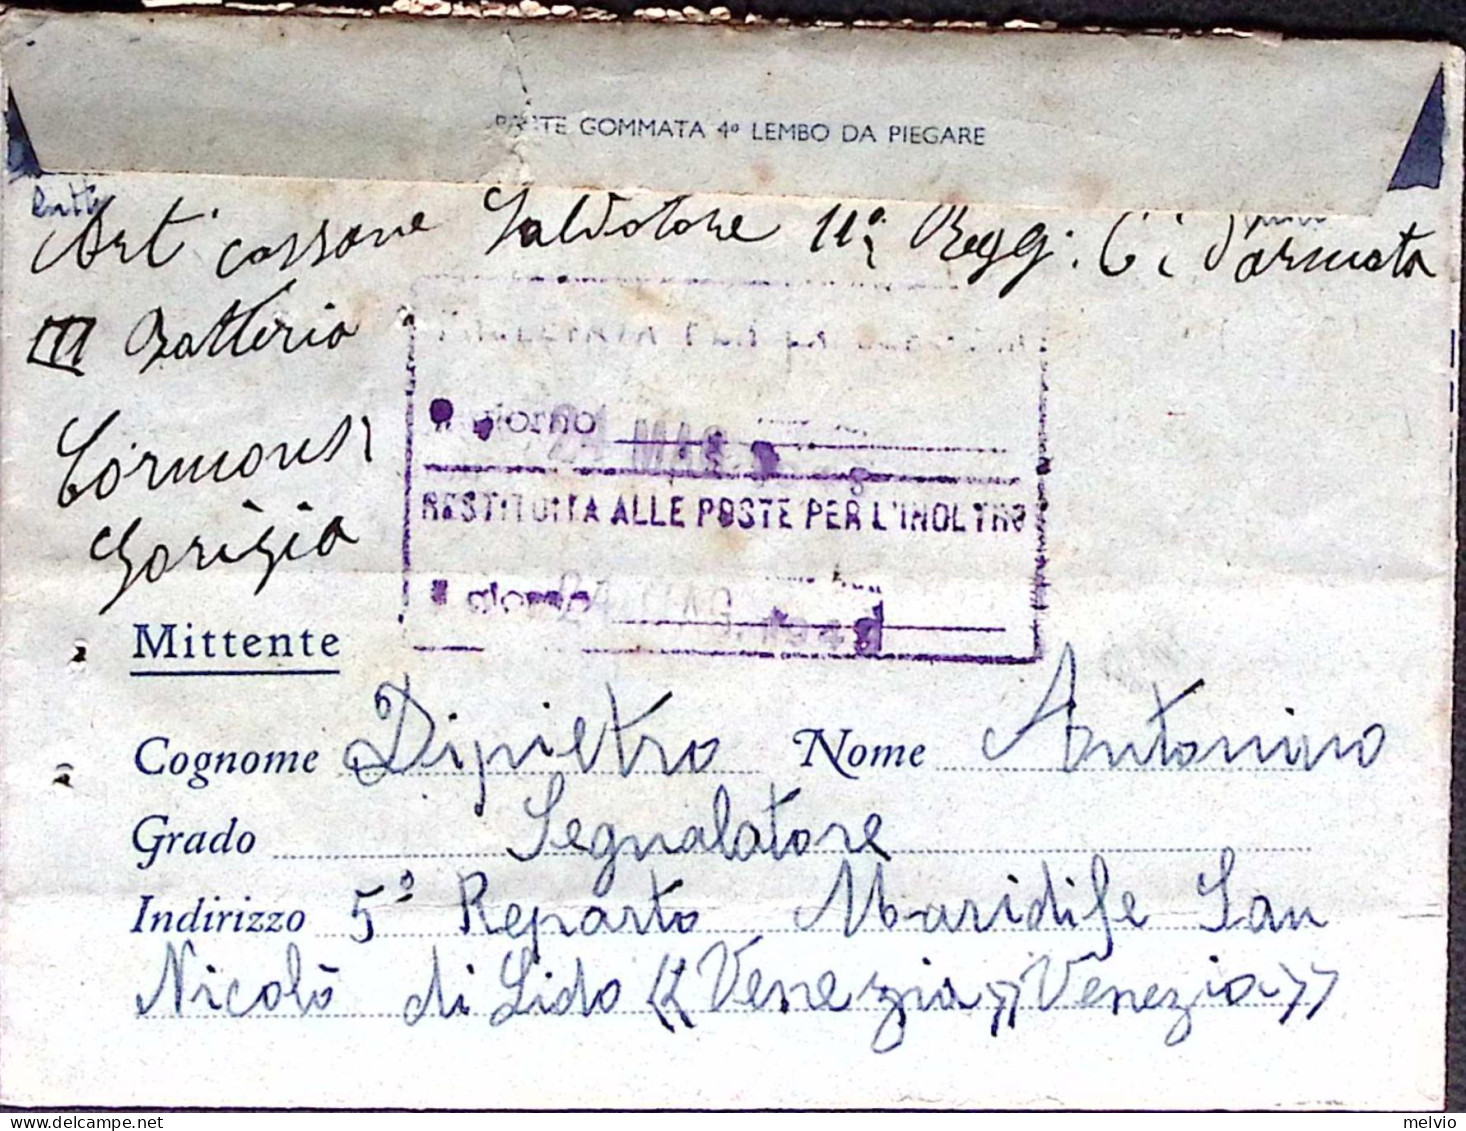 PARTE GOMMATA 4º LEMBO DA PIEGARE
Art. cassone Salvatore 11º Regg: C. d'armata
III Batteria
Cormons
Gorizia
Il giorno 21 MAG
RESTITUITA ALLE POSTE PER L'INOLTRO
Il giorno 21 MAG. 194
Mittente
Cognome Dipietro Nome Antonino
Grado Segnalatore
Indirizzo 5º Reparto Maridife San
Nicolò di Lido «Venezia» Venezia»
melvio